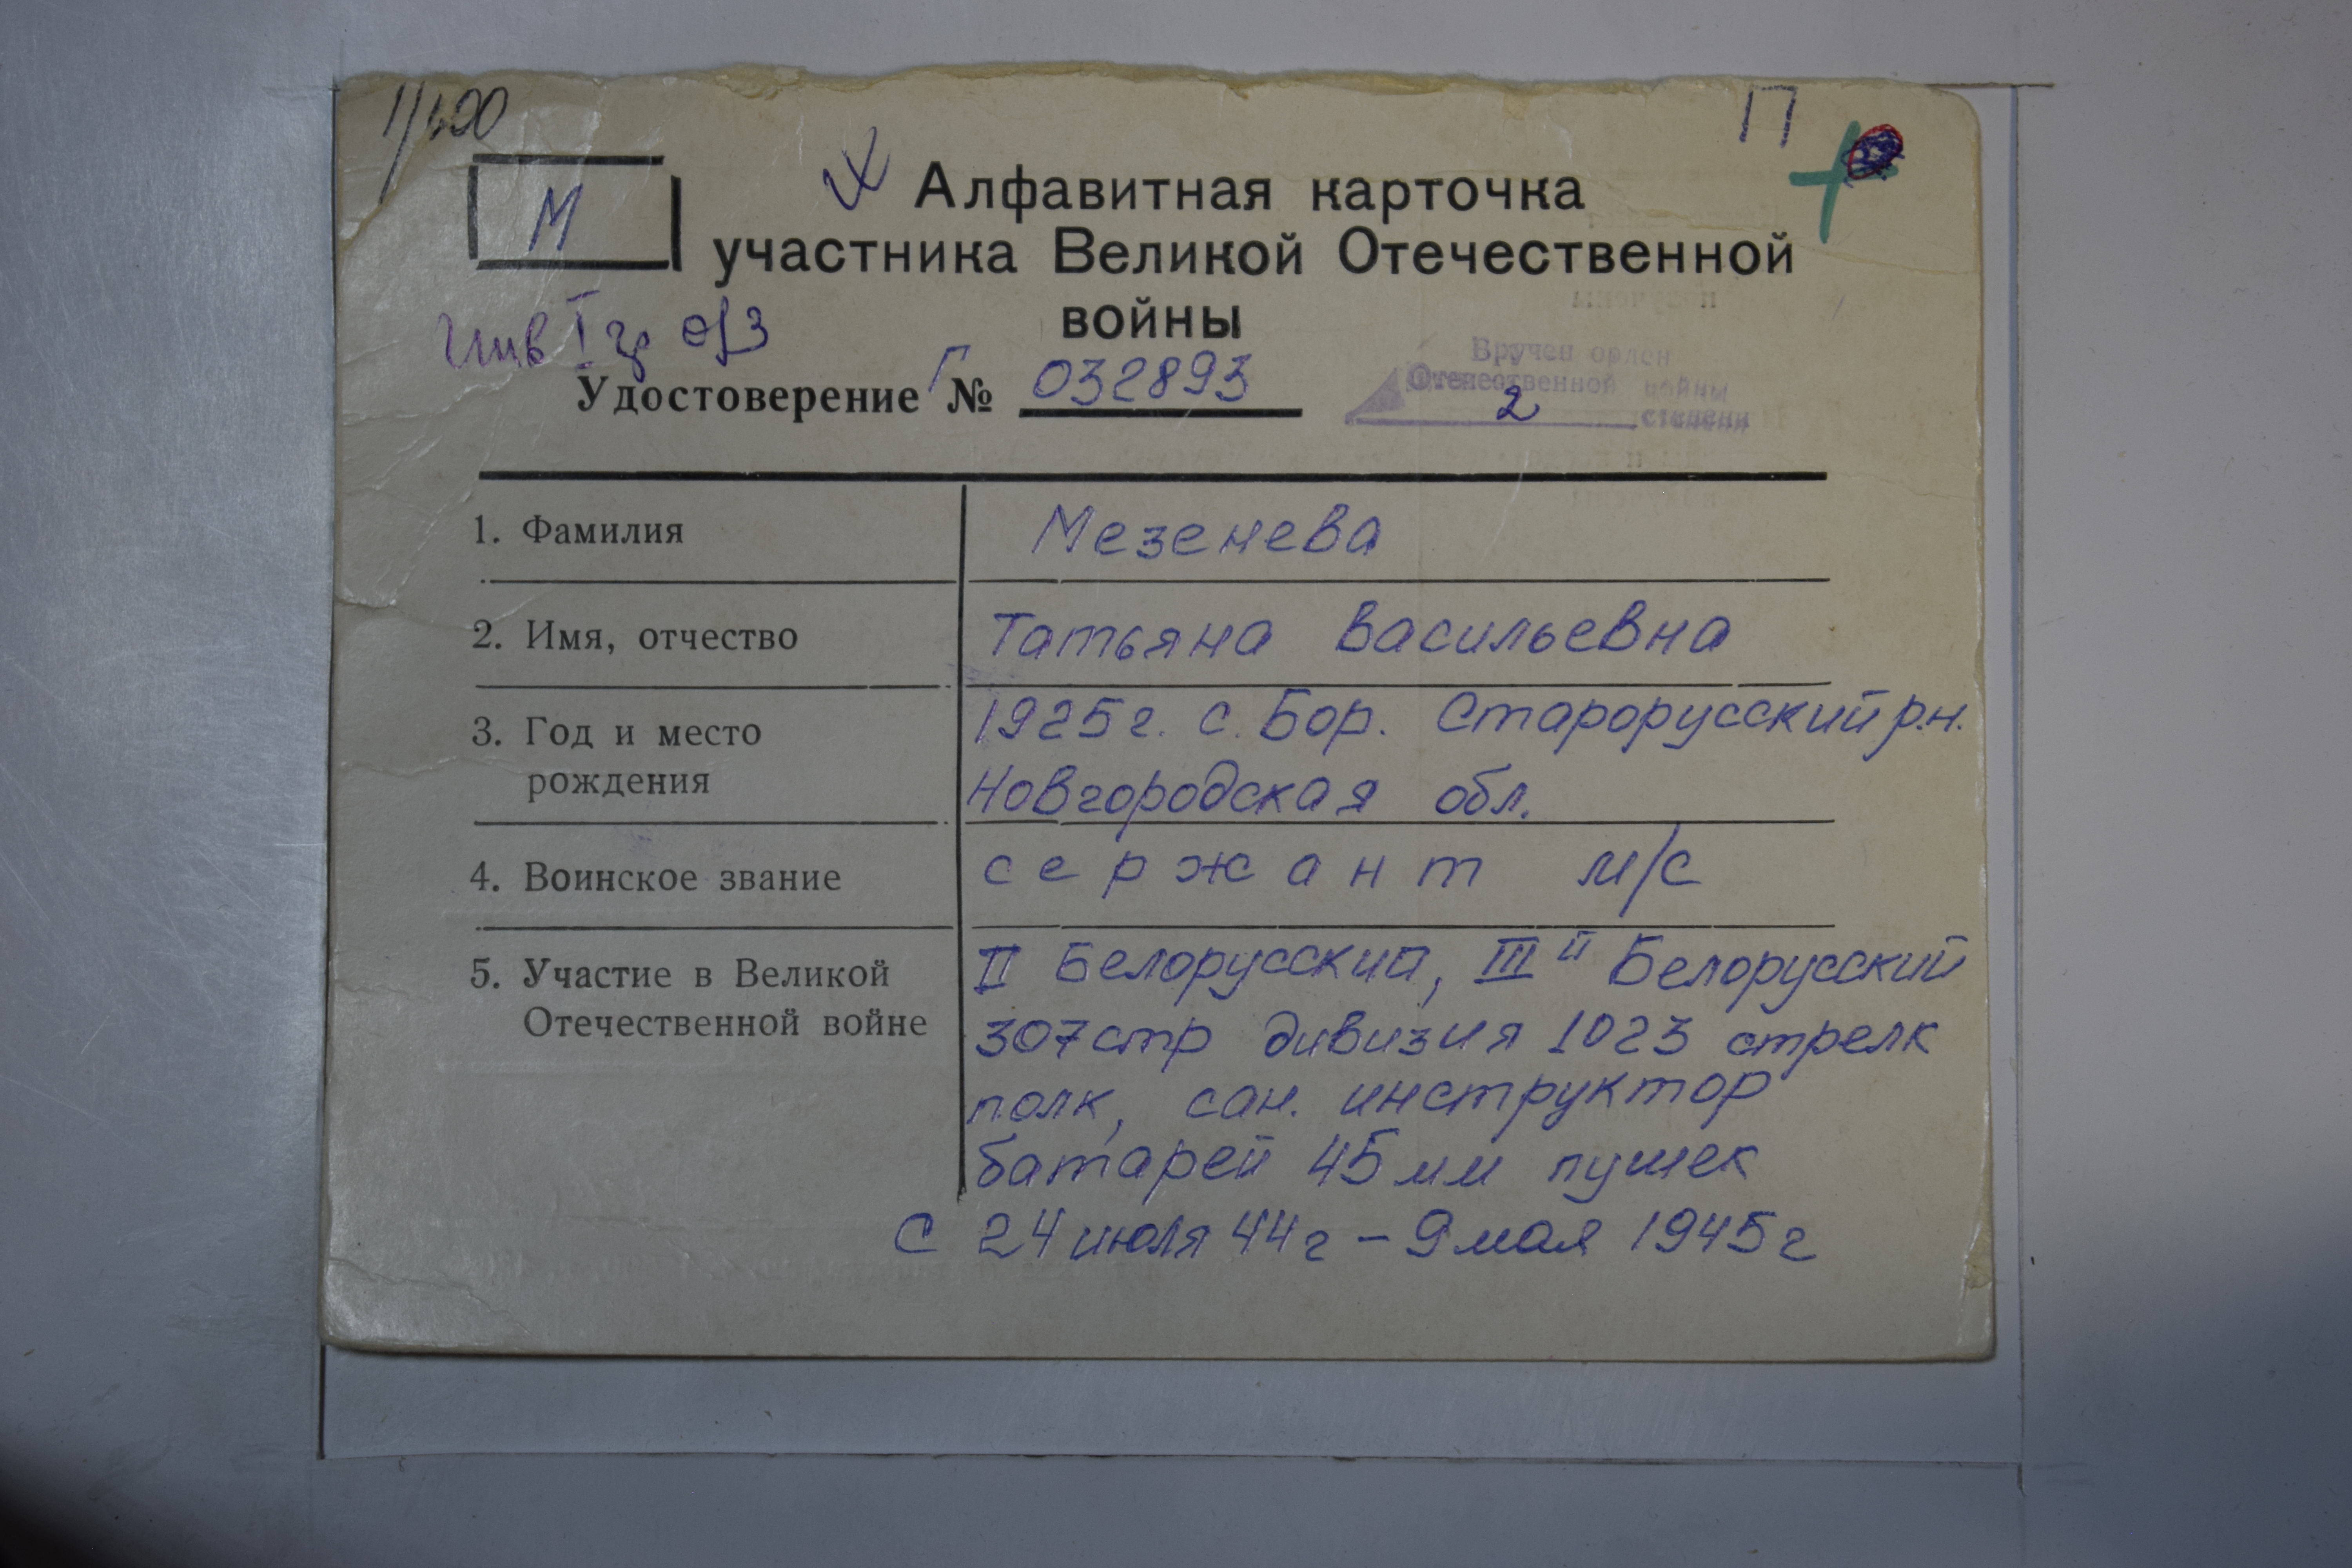 П
М
Алфавитная карточка
участника Великой Отечественной
войны
инв I гр
Удостоверение Г № 032893
Вручен орден
Отечественной войны
2 степени
1. Фамилия Мезенева
2. Имя, отчество Татьяна Васильевна
3. Год и место 1925г. с. Бор. Старорусский р.н.
рождения Новгородская обл.
4. Воинское звание сержант м/с
5. Участие в Великой II Белорусский, III й Белорусский
Отечественной войне 307 стр дивизия 1023 стрелк
полк, сан. инструктор
батарей 45 мм пушек
с 24 июля 44г – 9 мая 1945г